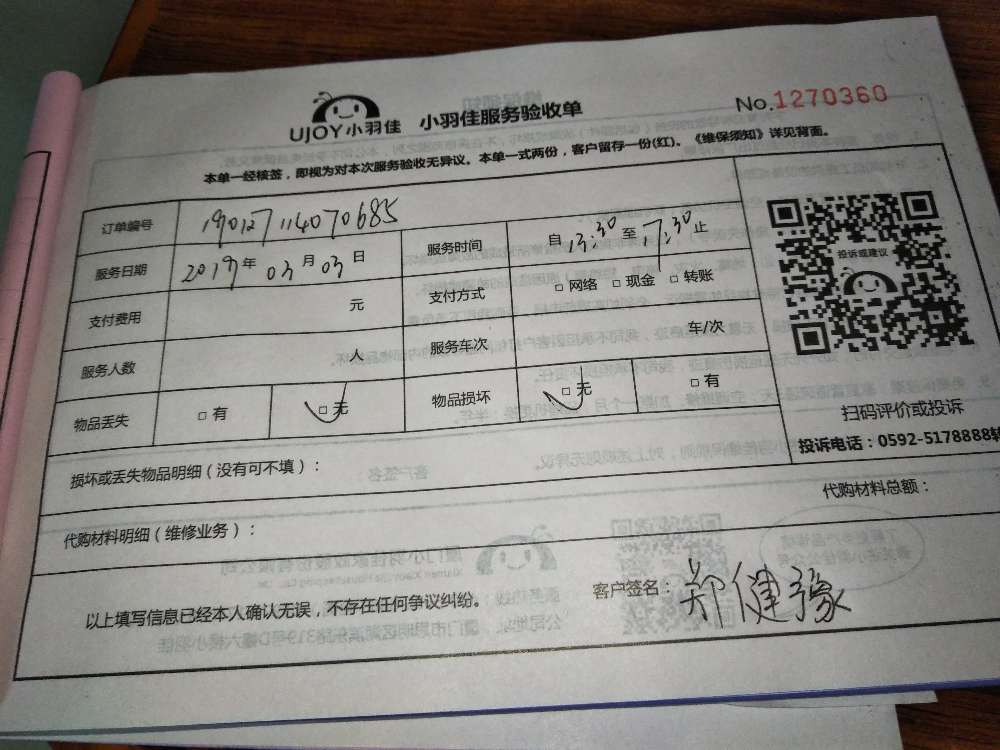 UJOY小羽佳 小羽佳服务验收单 No.1270360
本单一经核签，即视为对本次服务验收无异议。本单一式两份，客户留存一份(红)。《维保须知》详见背面。
订单编号 190127114070685
服务日期 2019年03月03日 服务时间 自13:30至17:30止
支付费用 元 支付方式 □网络 □现金 □转账
服务人数 人 服务车次 车/次
物品丢失 □有 □无 物品损坏 □无 □有
投诉或建议
扫码评价或投诉
投诉电话：0592-5178888转
损坏或丢失物品明细（没有可不填）：
代购材料明细（维修业务）： 代购材料总额：
以上填写信息已经本人确认无误，不存在任何争议纠纷。 客户签名：郑健豫